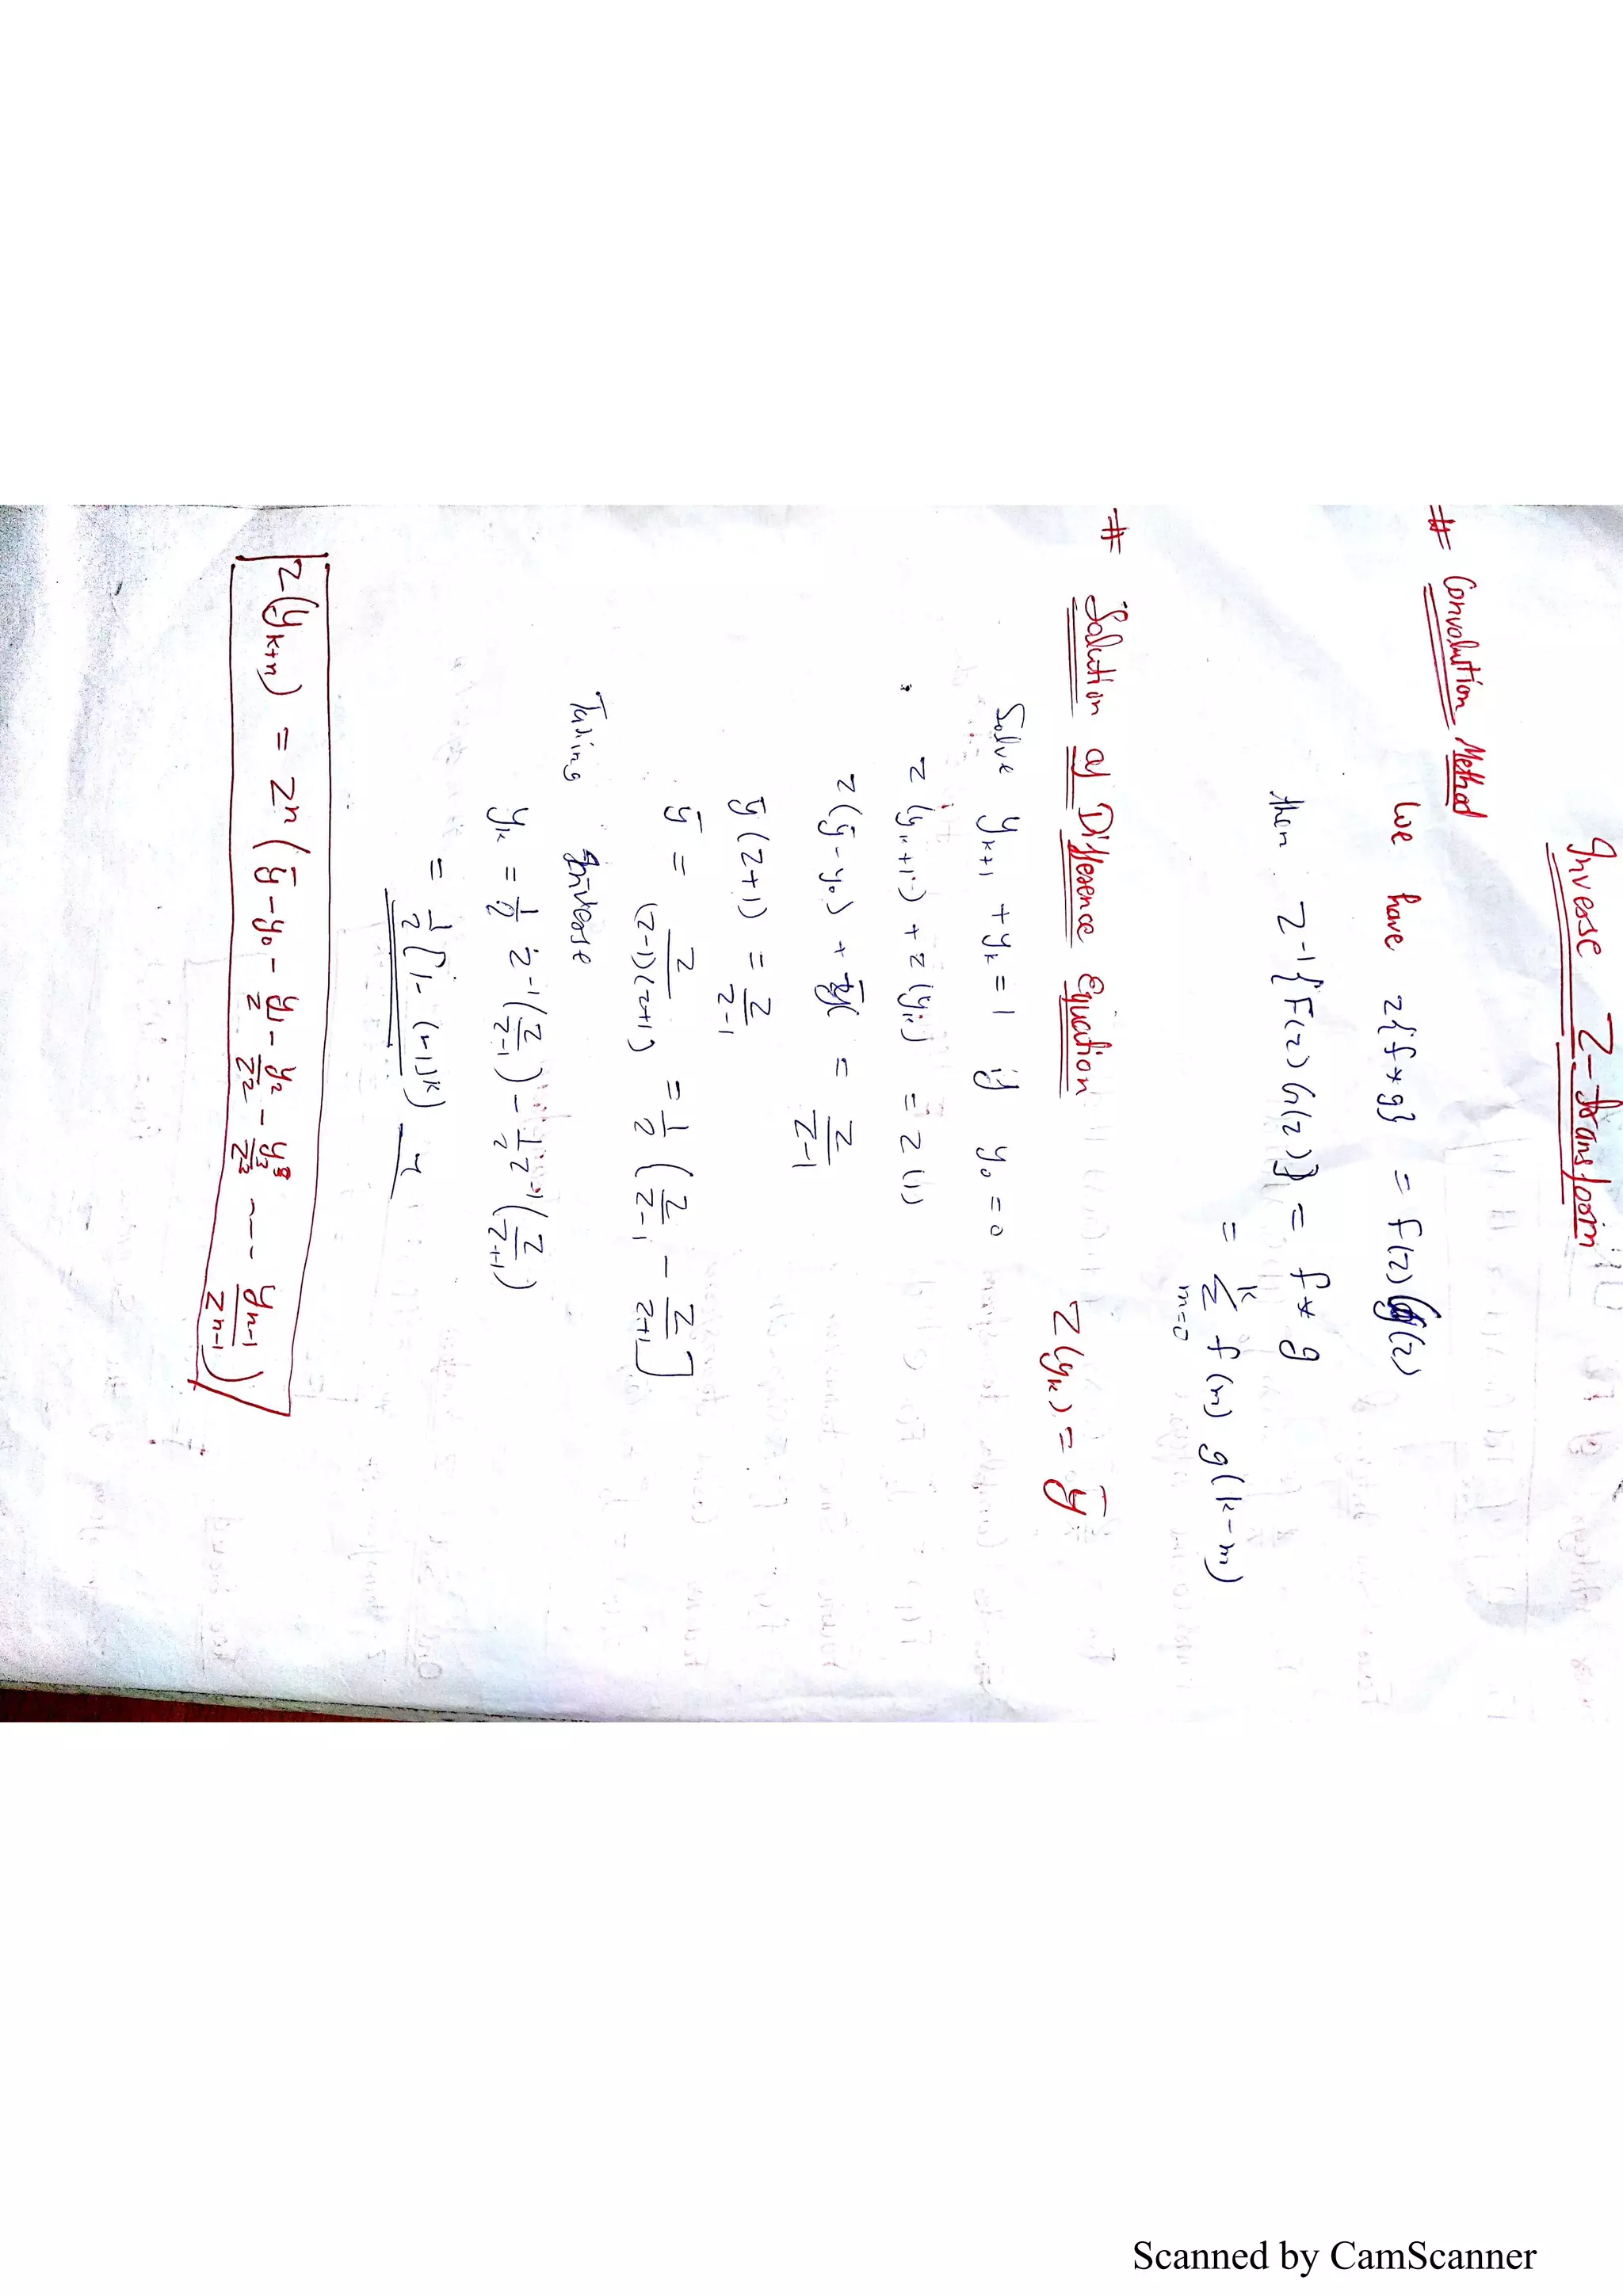 Inverse Z-transform
# Convolution Method
We have z{f*g} = F(z) G(z)
then z⁻¹{F(z) G(z)} = f * g
= Σ f(m) g(k-m)
k
m=0
# Solution of Difference Equation Z(yₖ) = ȳ
Solve yₖ₊₁ + yₖ = 1 if y₀ = 0
z(yₖ₊₁) + z(yₖ) = z(1)
z(ȳ - y₀) + ȳ = z/(z-1)
ȳ(z+1) = z/(z-1)
ȳ = z/((z-1)(z+1)) = 1/2 ( z/(z-1) - z/(z+1) ]
Taking Inverse
yₖ = 1/2 z⁻¹(z/(z-1)) - 1/2 z⁻¹(z/(z+1))
= 1/2 [1 - (-1)ᵏ)
Z(yₖ₊ₙ) = zⁿ(ȳ - y₀ - y₁/z - y₂/z² - y₃/z³ ---- yₙ₋₁/zⁿ⁻¹)
Scanned by CamScanner